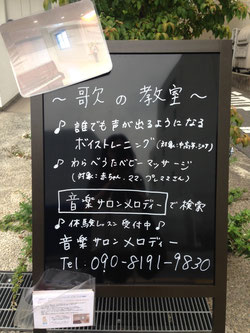 ～歌の教室～
♪誰でも声が出るようになる
ボイストレーニング(対象:中高年、シニア)
♪わらべうたベビーマッサージ
(対象:赤ちゃん、ママ、プレママさん)
音楽サロンメロディー で検索
♪体験レッスン受付中♪
音楽サロンメロディー
Tel:090-8191-9830